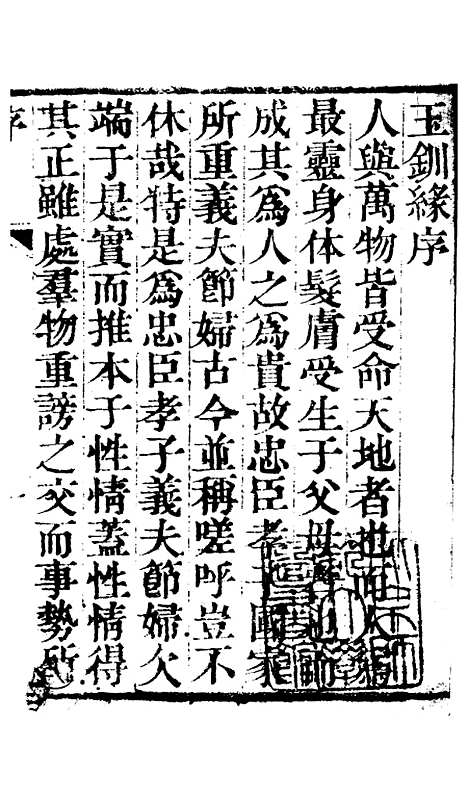 玉釧緣序
人與萬物皆受命天地者也而人
最靈身体髮膚受生于父母
成其爲人之爲貴故忠臣孝子國家
所重義夫節婦古今並稱嗟呼豈不
休哉特是爲忠臣孝子義夫節婦欠
端于是實而推本于性情蓋性情得
其正雖處羣物重謗之交而事勢所
序